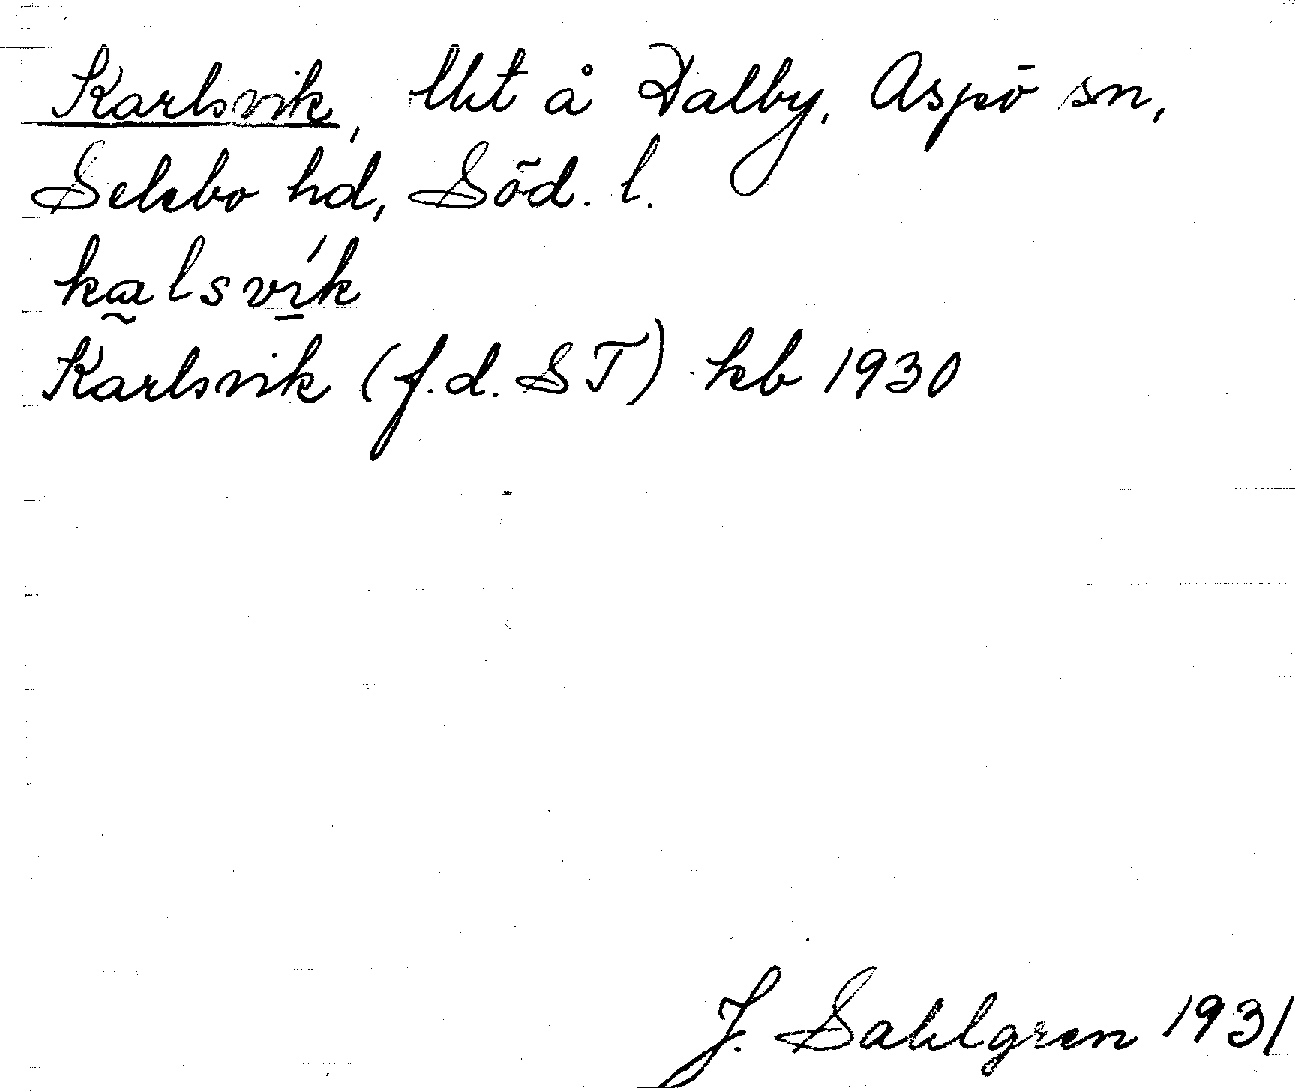 Karlsvik, lht å Dalby, Aspö sn,
Selebo hd, Söd. l.
kalsvík
Karlsvik (f.d. ST) kb 1930
J. Sahlgren 1931